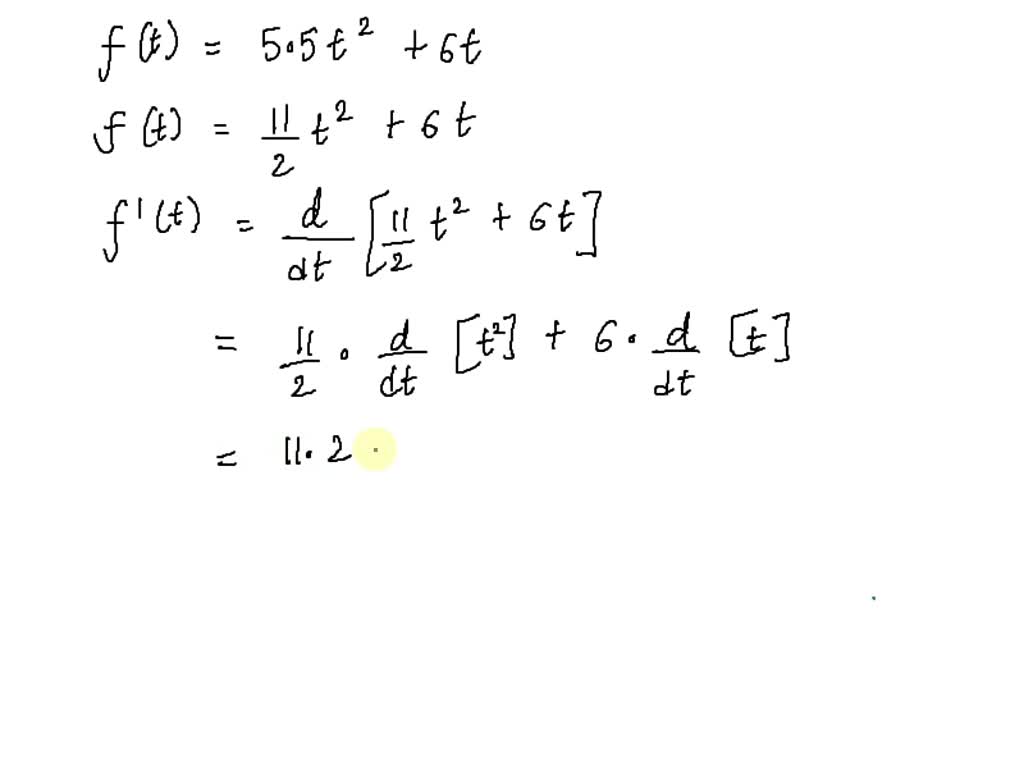 f(t) = 5.5t² + 6t
f(t) = 11/2 t² + 6t
f'(t) = d/dt [11/2 t² + 6t]
= 11/2 · d/dt [t²] + 6 · d/dt [t]
= 11 · 2